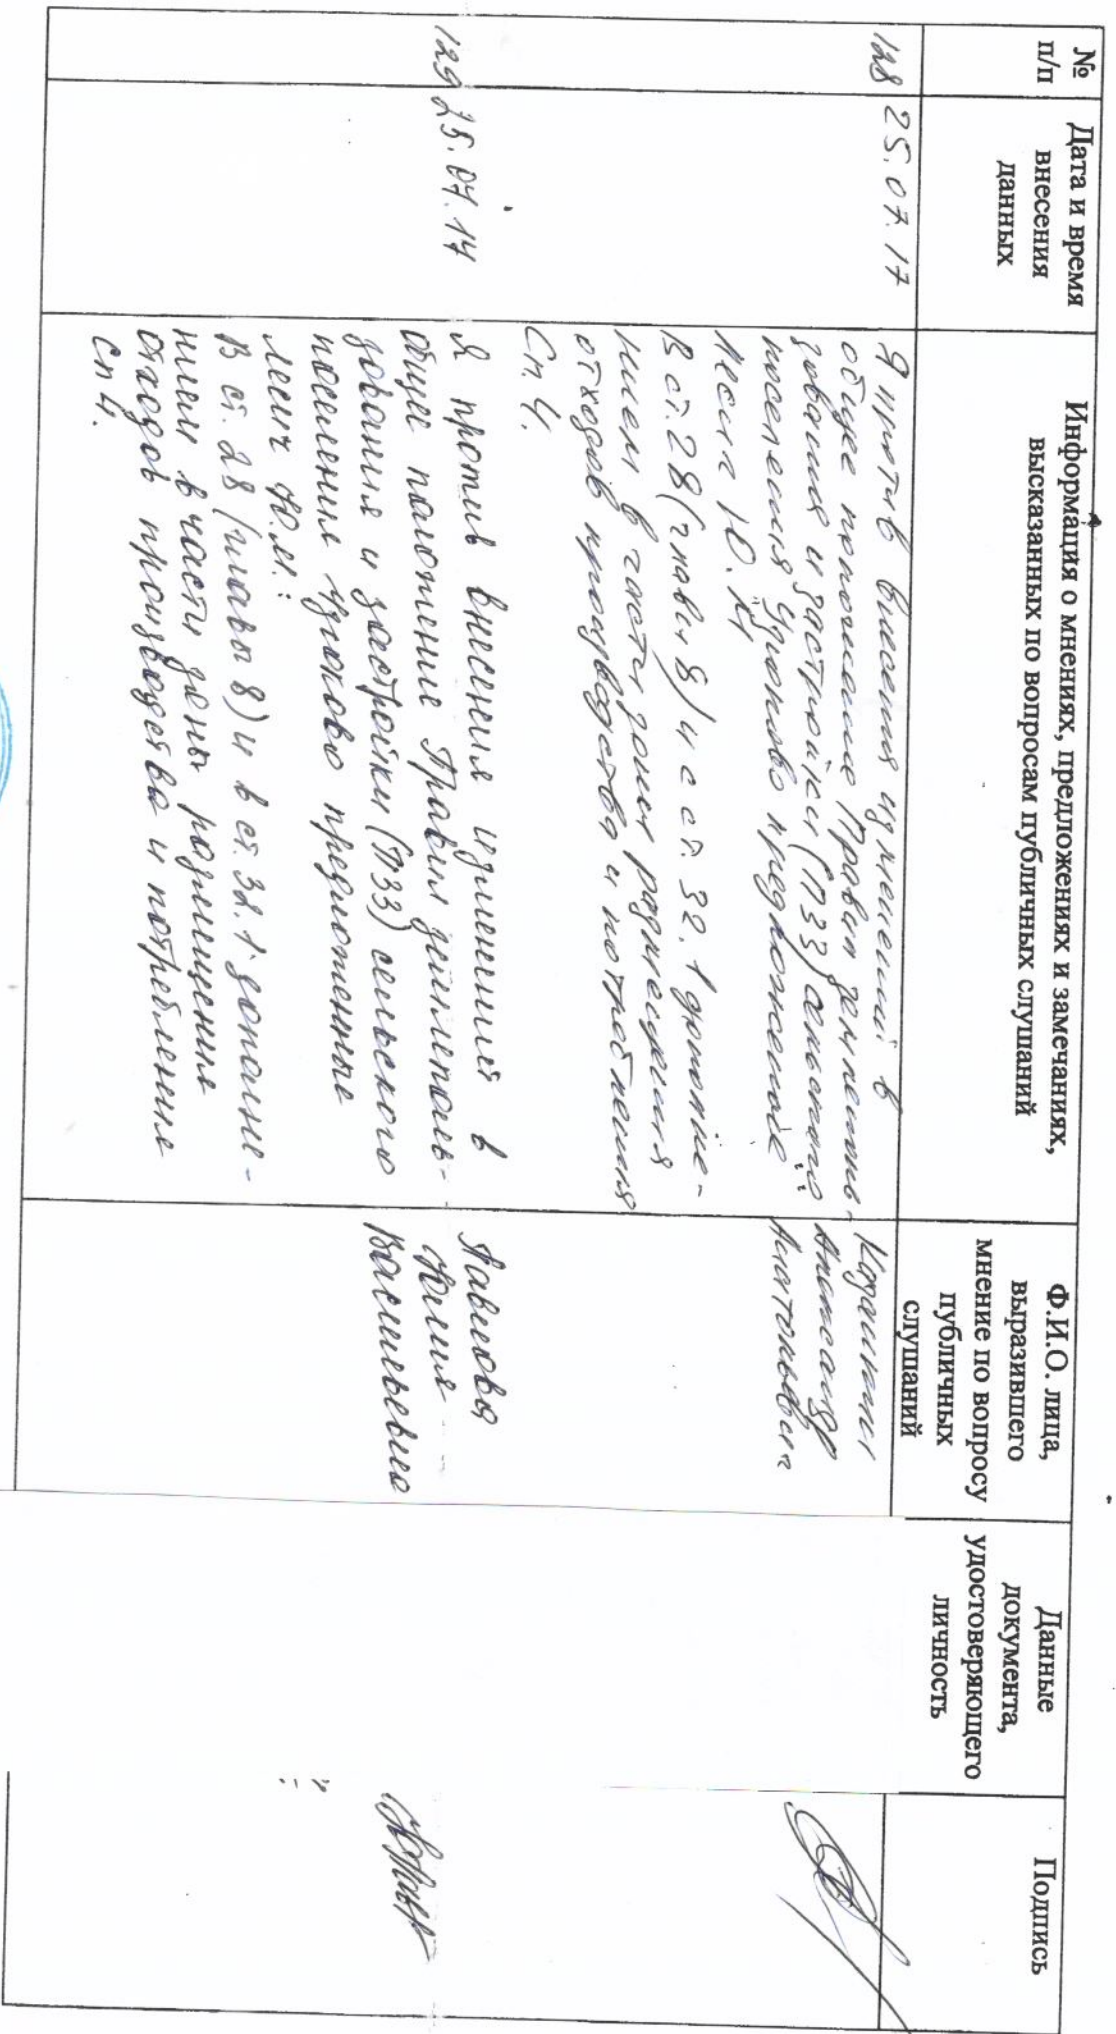 №
п/п
Дата и время
внесения
данных
Информация о мнениях, предложениях и замечаниях,
высказанных по вопросам публичных слушаний
Ф.И.О. лица,
выразившего
мнение по вопросу
публичных
слушаний
Данные
документа,
удостоверяющего
личность
Подпись
128
25.07.17
Я против внесения изменений в
общее положение Правил землеполь-
зования и застройки (ПЗЗ) сельского
поселения предложенные
Ю.М
В ст. 28 (главы 8) и с ст. 32.1 дополне-
нием в части зоны размещения
отходов производства и потребления
Сп. 4.
Александр
Антонович
129
25.07.17
Я против внесения изменений в
общее положение Правил землеполь-
зования и застройки (ПЗЗ) сельского
поселения предложенные
Ю.М.:
В ст. 28 (главы 8) и в ст. 32.1. дополне-
нием в части зоны размещения
отходов производства и потребления
сп 4.
Павлова
Юлия
Васильевна